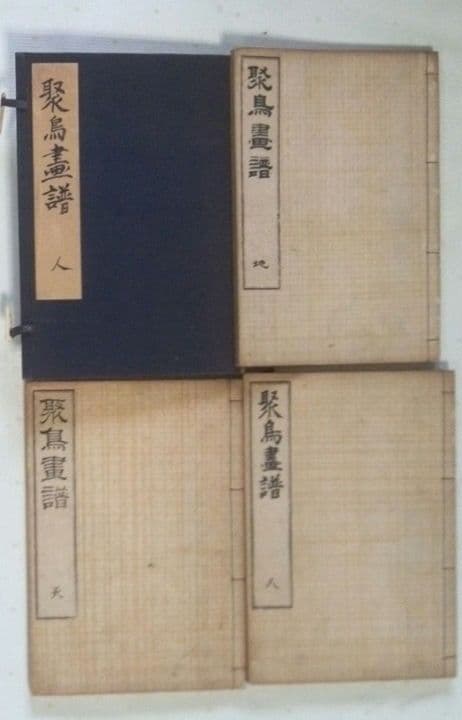 聚鳥畫譜
人
聚鳥畫譜
地
聚鳥畫譜
天
聚鳥畫譜
人